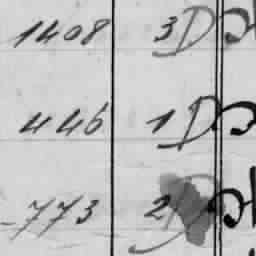 1408 3 D
446 1 D
773 2 D